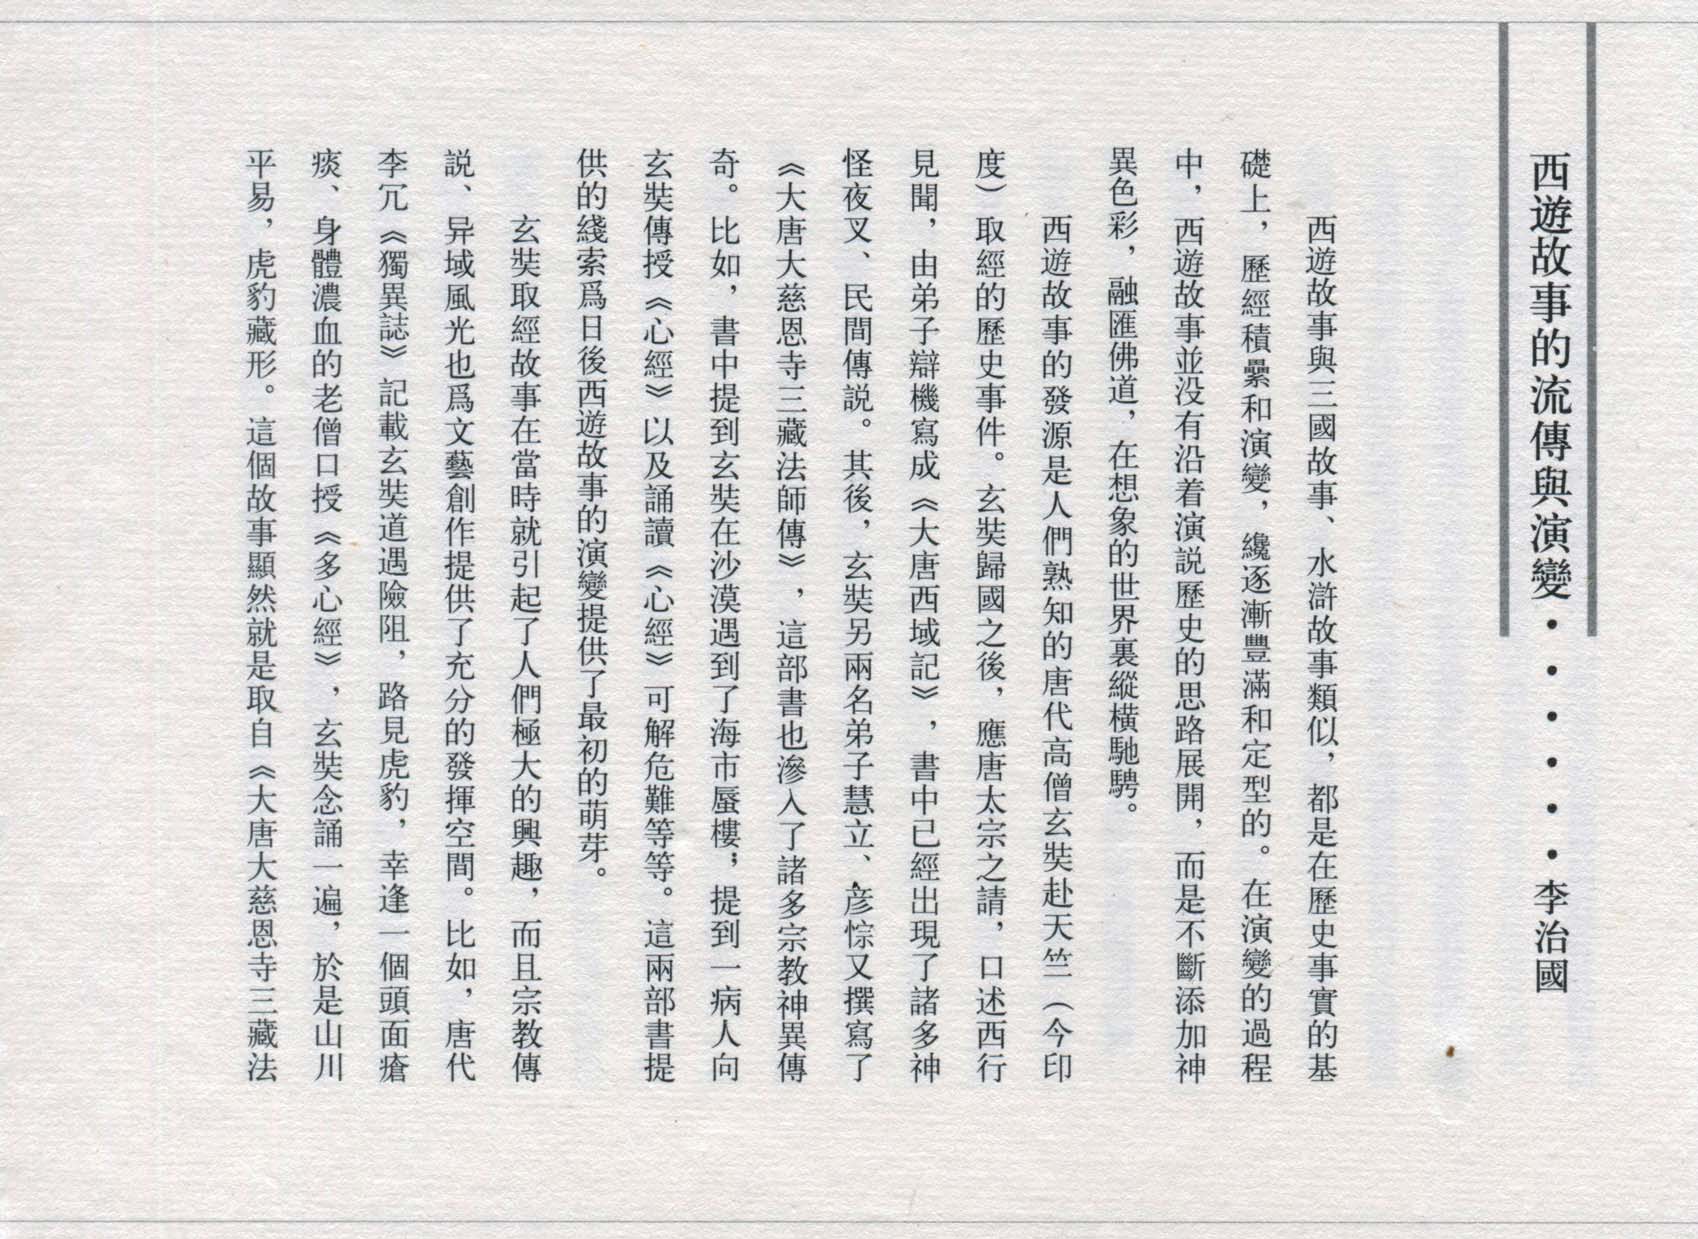 西遊故事的流傳與演變・・・・・・李治國
西遊故事與三國故事、水滸故事類似，都是在歷史事實的基
礎上，歷經積纍和演變，纔逐漸豐滿和定型的。在演變的過程
中，西遊故事並没有沿着演説歷史的思路展開，而是不斷添加神
異色彩，融匯佛道，在想象的世界裏縱橫馳騁。
西遊故事的發源是人們熟知的唐代高僧玄奘赴天竺（今印
度）取經的歷史事件。玄奘歸國之後，應唐太宗之請，口述西行
見聞，由弟子辯機寫成《大唐西域記》，書中已經出現了諸多神
怪夜叉、民間傳説。其後，玄奘另兩名弟子慧立、彦悰又撰寫了
《大唐大慈恩寺三藏法師傳》，這部書也滲入了諸多宗教神異傳
奇。比如，書中提到玄奘在沙漠遇到了海市蜃樓；提到一病人向
玄奘傳授《心經》以及誦讀《心經》可解危難等等。這兩部書提
供的綫索爲日後西遊故事的演變提供了最初的萌芽。
玄奘取經故事在當時就引起了人們極大的興趣，而且宗教傳
説、异域風光也爲文藝創作提供了充分的發揮空間。比如，唐代
李冗《獨異誌》記載玄奘道遇險阻，路見虎豹，幸逢一個頭面瘡
痰、身體濃血的老僧口授《多心經》，玄奘念誦一遍，於是山川
平易，虎豹藏形。這個故事顯然就是取自《大唐大慈恩寺三藏法